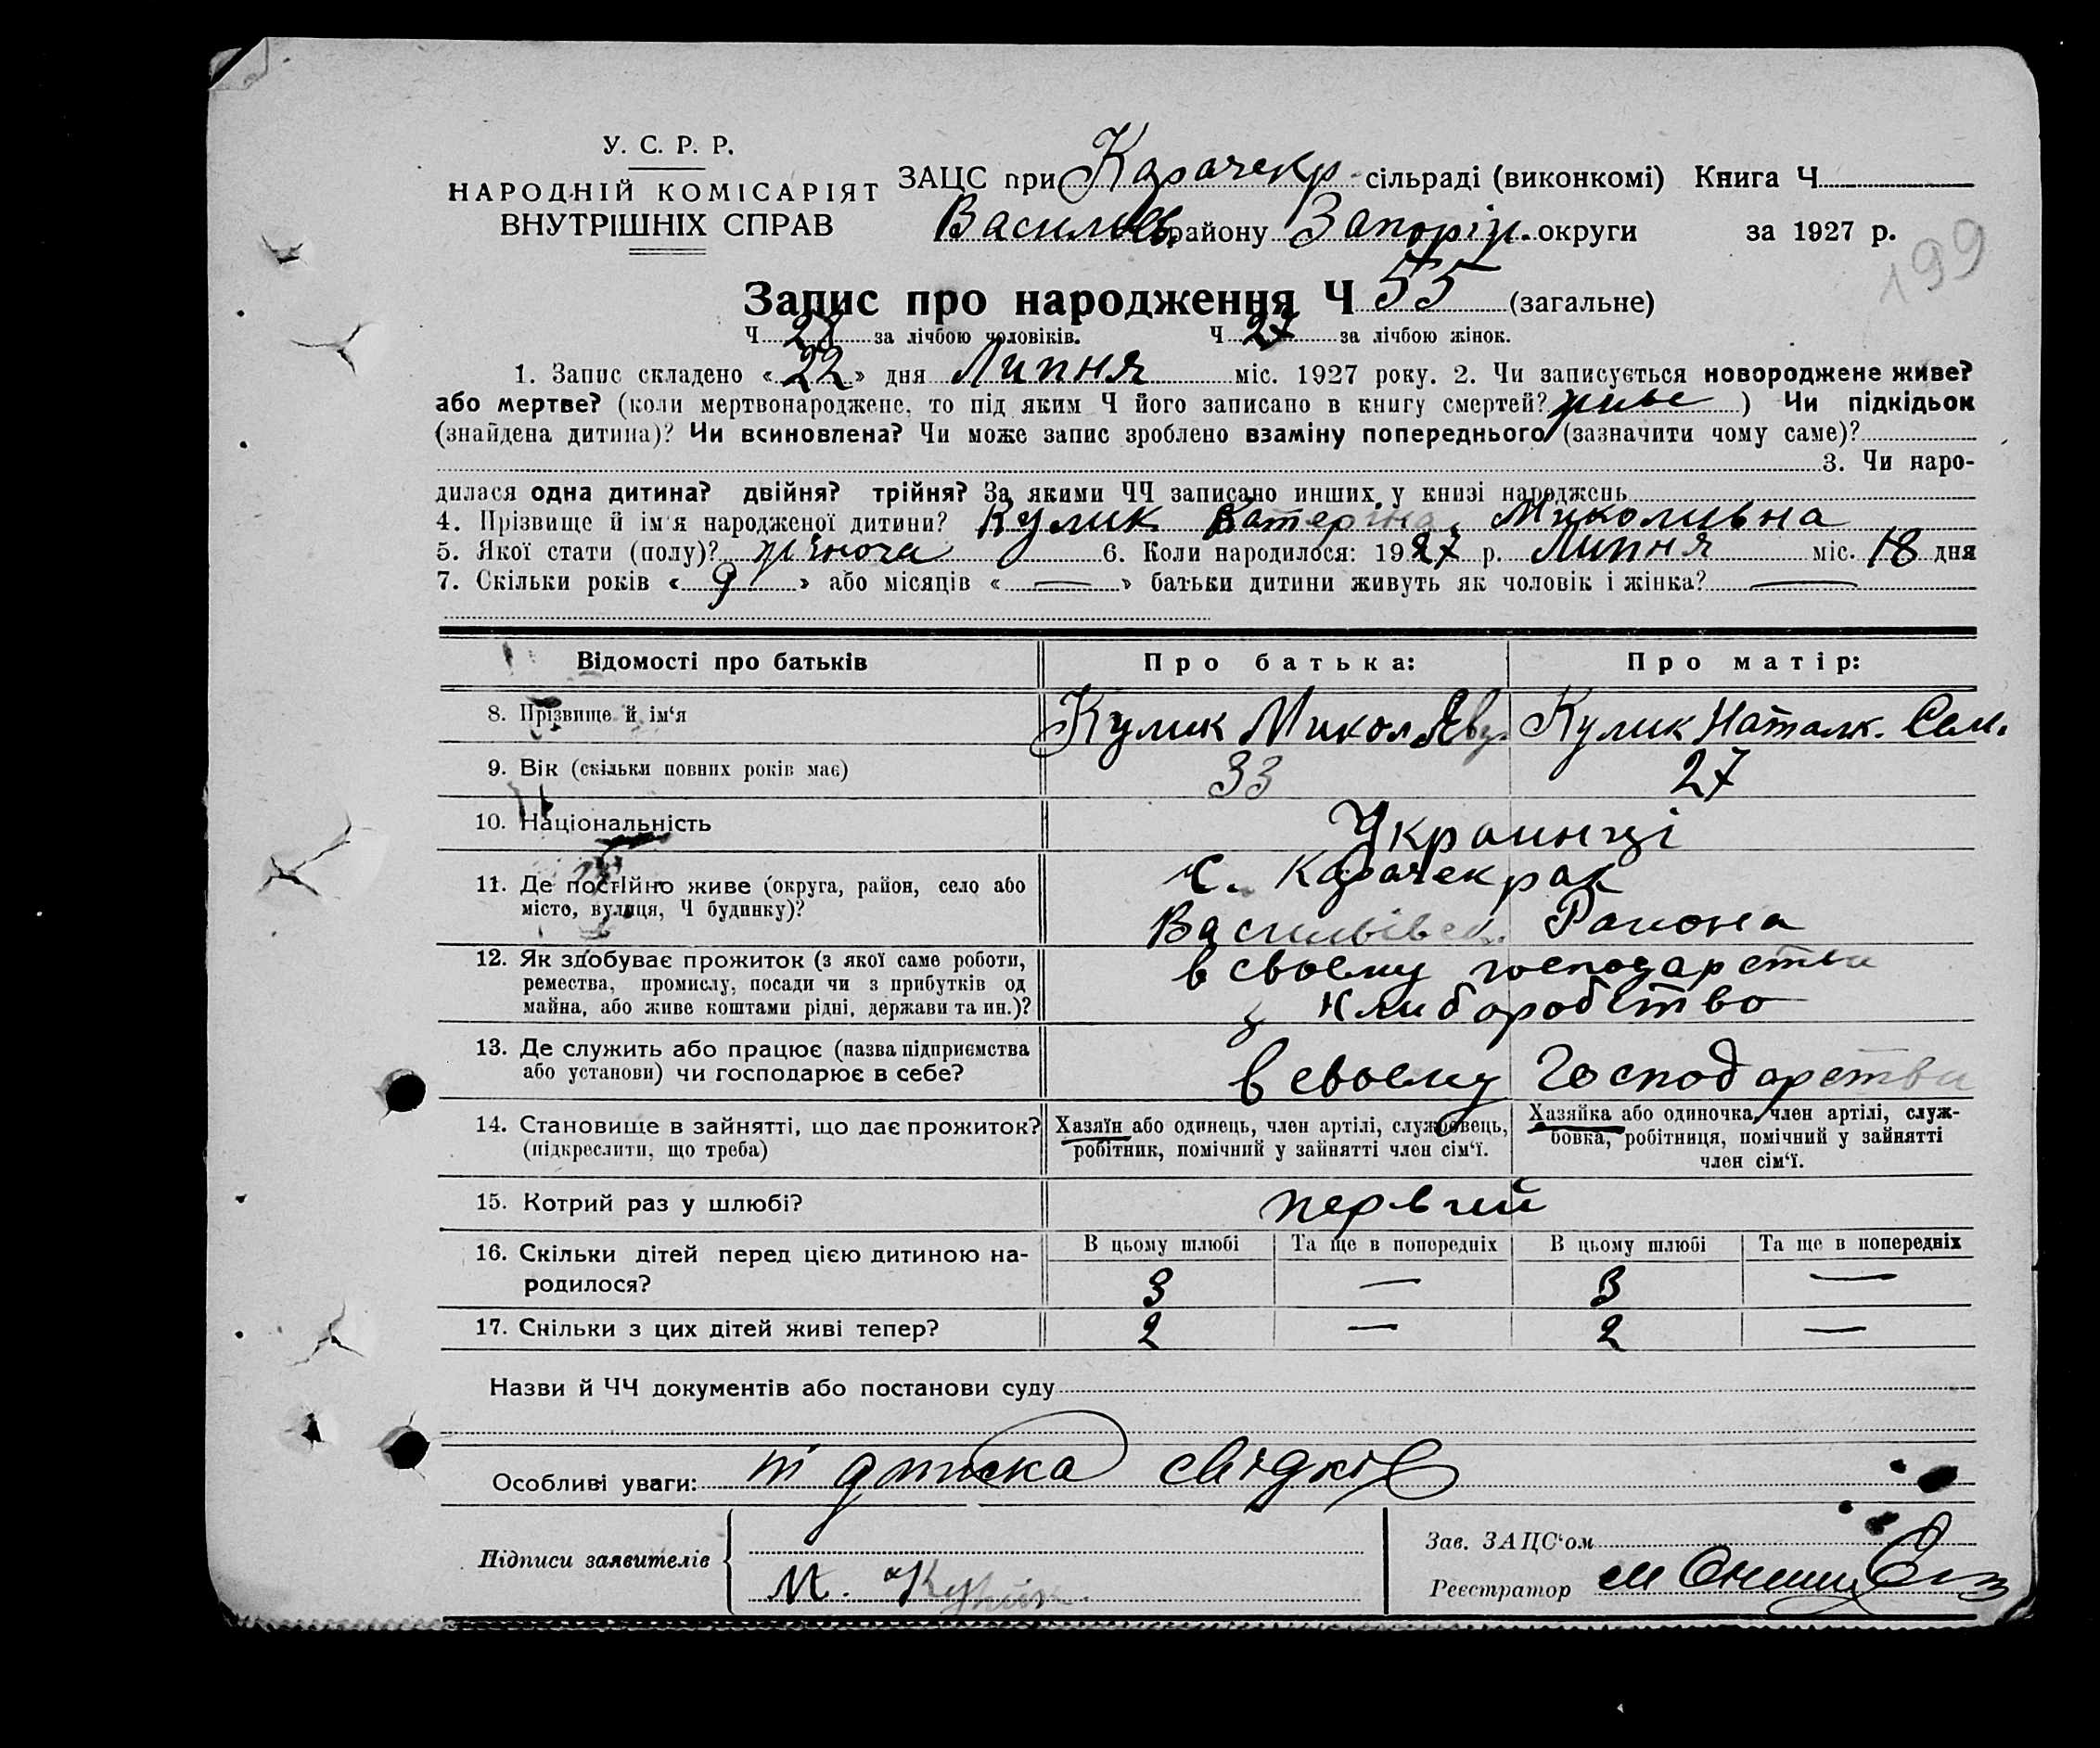 У. С. Р. Р.
НАРОДНІЙ КОМІСАРІЯТ
ВНУТРІШНІХ СПРАВ
ЗАЦС при Карачекр. сільраді (виконкомі) Книга Ч
Васильів. району Запоріз. округи за 1927 р.
199
Запис про народження Ч 55 (загальне)
Ч 28 за лічбою чоловіків. Ч 27 за лічбою жінок.
1. Запис складено «22» дня Липня міс. 1927 року. 2. Чи записується новороджене живе?
або мертве? (коли мертвонароджене, то під яким Ч його записано в книгу смертей? живе ) Чи підкідьок
(знайдена дитина)? Чи всиновлена? Чи може запис зроблено взаміну попереднього (зазначити чому саме)?
3. Чи наро-
дилася одна дитина? двійня? трійня? За якими ЧЧ записано инших у книзі народжень
4. Прізвище й ім'я народженої дитини? Кулик Катеріна Миколивна
5. Якої стати (полу)? жіноча 6. Коли народилося: 1927 р. Липня міс. 18 дня
7. Скільки років «9» або місяців «—» батьки дитини живуть як чоловік і жінка? —
Відомості про батьків Про батька: Про матір:
8. Прізвище й ім‘я Кулик Микол Кулик Наталк. Сем.
9. Вік (скільки повних років має) 33 27
10. Національність Украинці
11. Де постійно живе (округа, район, село або
місто, вулиця, Ч будинку)?
с. Карачекрак
Васильівск. Раиона
12. Як здобуває прожиток (з якої саме роботи,
ремества, промислу, посади чи з прибутків од
майна, або живе коштами рідні, держави та ин.)?
в своему господарстви
з хлиборобство
13. Де служить або працює (назва підприємства
або установи) чи господарює в себе?
в своему Господарстви
14. Становище в зайнятті, що дає прожиток?
(підкреслити, що треба)
Хазяїн або одинець, член артілі, службовець,
робітник, помічний у зайнятті член сім‘ї.
Хазяйка або одиночка, член артілі, служ-
бовка, робітниця, помічний у зайнятті
член сім‘ї.
15. Котрий раз у шлюбі? первий
16. Скільки дітей перед цією дитиною на-
родилося?
В цьому шлюбі Та ще в попередніх В цьому шлюбі Та ще в попередніх
3 — 3 —
17. Скільки з цих дітей живі тепер? 2 — 2 —
Назви й ЧЧ документів або постанови суду
Особливі уваги: підписка свідків
Підписи заявителів
М. Кулик
Зав. ЗАЦС‘ом
Реєстратор